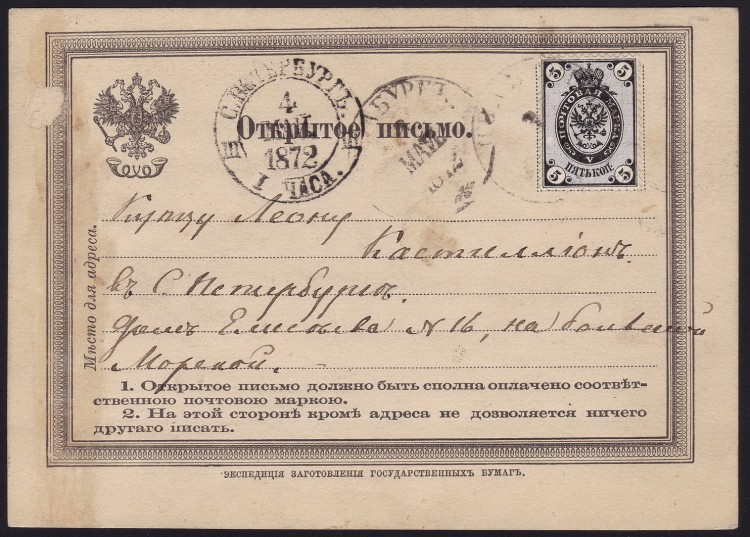 С.ПЕТЕРБУРГЪ.
4
МАЙ
1872
I ЧАСА.
БУРГЪ.
МАЙ
1872
5 5
ПОЧТОВАЯ МАРКА
ПЯТЬ КОП.
5 5
Открытое письмо.
Мѣсто для адреса.
Купцу Леону
Кастиллiонъ
въ С Петербургѣ.
домъ Елисѣева N 16, на большой
Морской.
1. Открытое письмо должно быть сполна оплачено соотвѣт-
ственною почтовою маркою.
2. На этой сторонѣ кромѣ адреса не дозволяется ничего
другаго писать.
ЭКСПЕДИЦІЯ ЗАГОТОВЛЕНІЯ ГОСУДАРСТВЕННЫХЪ БУМАГЪ.